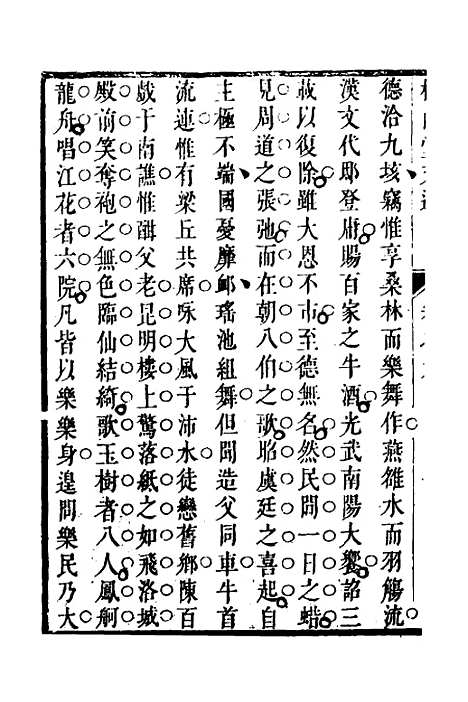 德洽九垓竊惟享桑林而樂舞作燕雒水而羽觴流
漢文代邸登庸賜百家之牛酒光武南陽大饗詔三
載以復除雖大恩不市至德無名然民間一日之蜡
見周道之張弛而在朝八伯之歌昭虞廷之喜起自
主極不端國憂靡䘏瑤池組舞但聞造父同車牛首
流連惟有梁丘共席咏大風于沛水徒戀舊鄉陳百
戲于南譙惟酺父老昆明樓上驚落紙之如飛洛城
殿前笑奪袍之無色臨仙結綺歌玉樹者八人鳳舸
龍舟唱江花者六院凡皆以樂樂身遑問樂民乃大